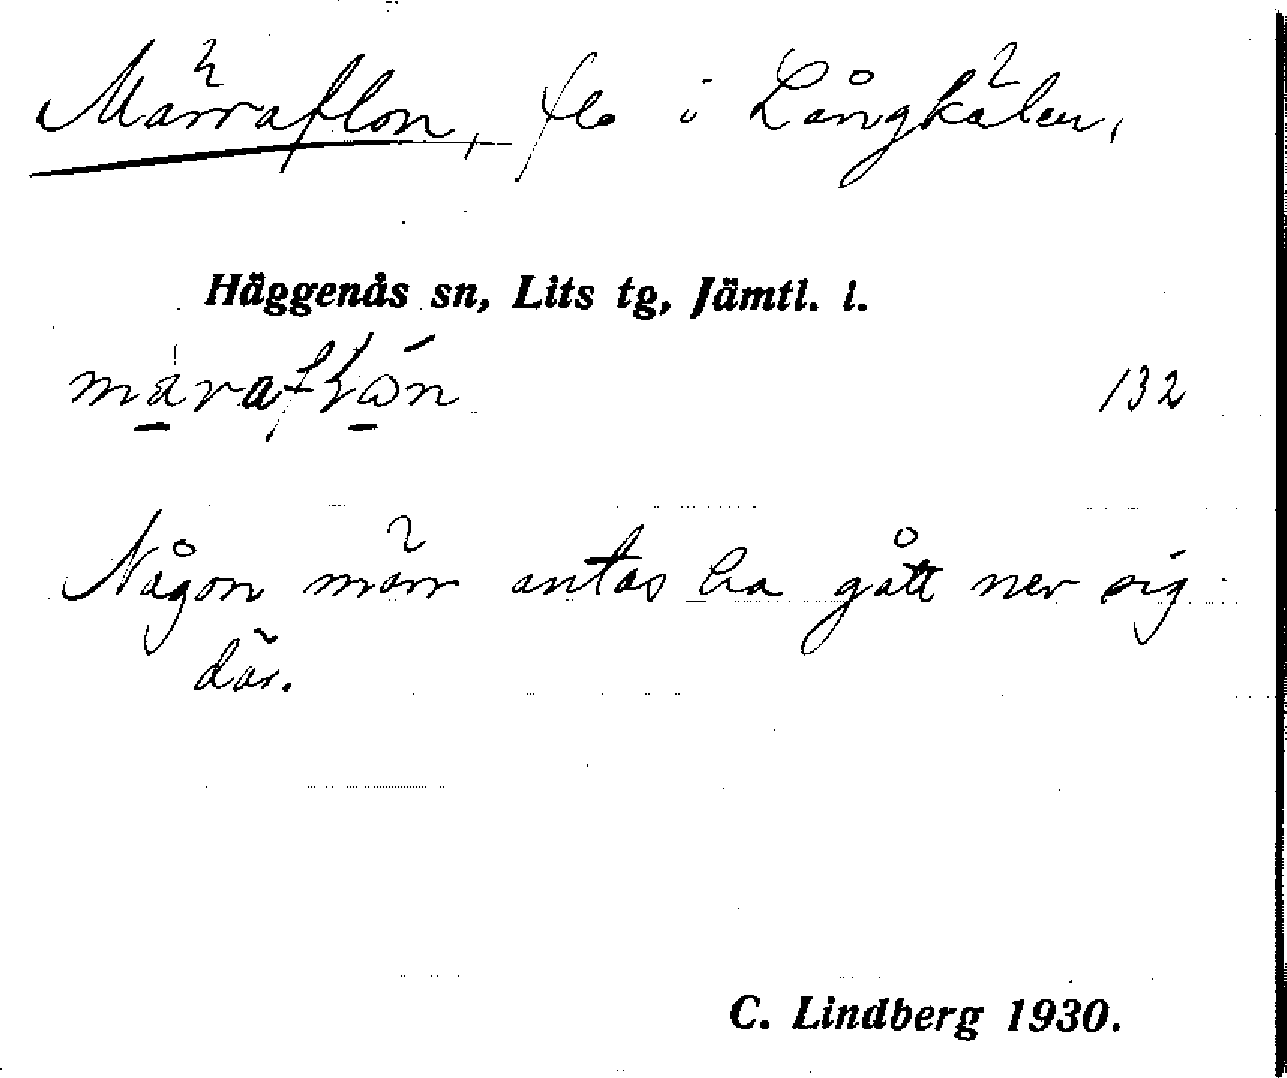 Märraflon, flo i Långkälen,
Häggenås sn, Lits tg, Jämtl. l.
märaflón 132
Någon märr antas ha gått ner sig
där.
C. Lindberg 1930.